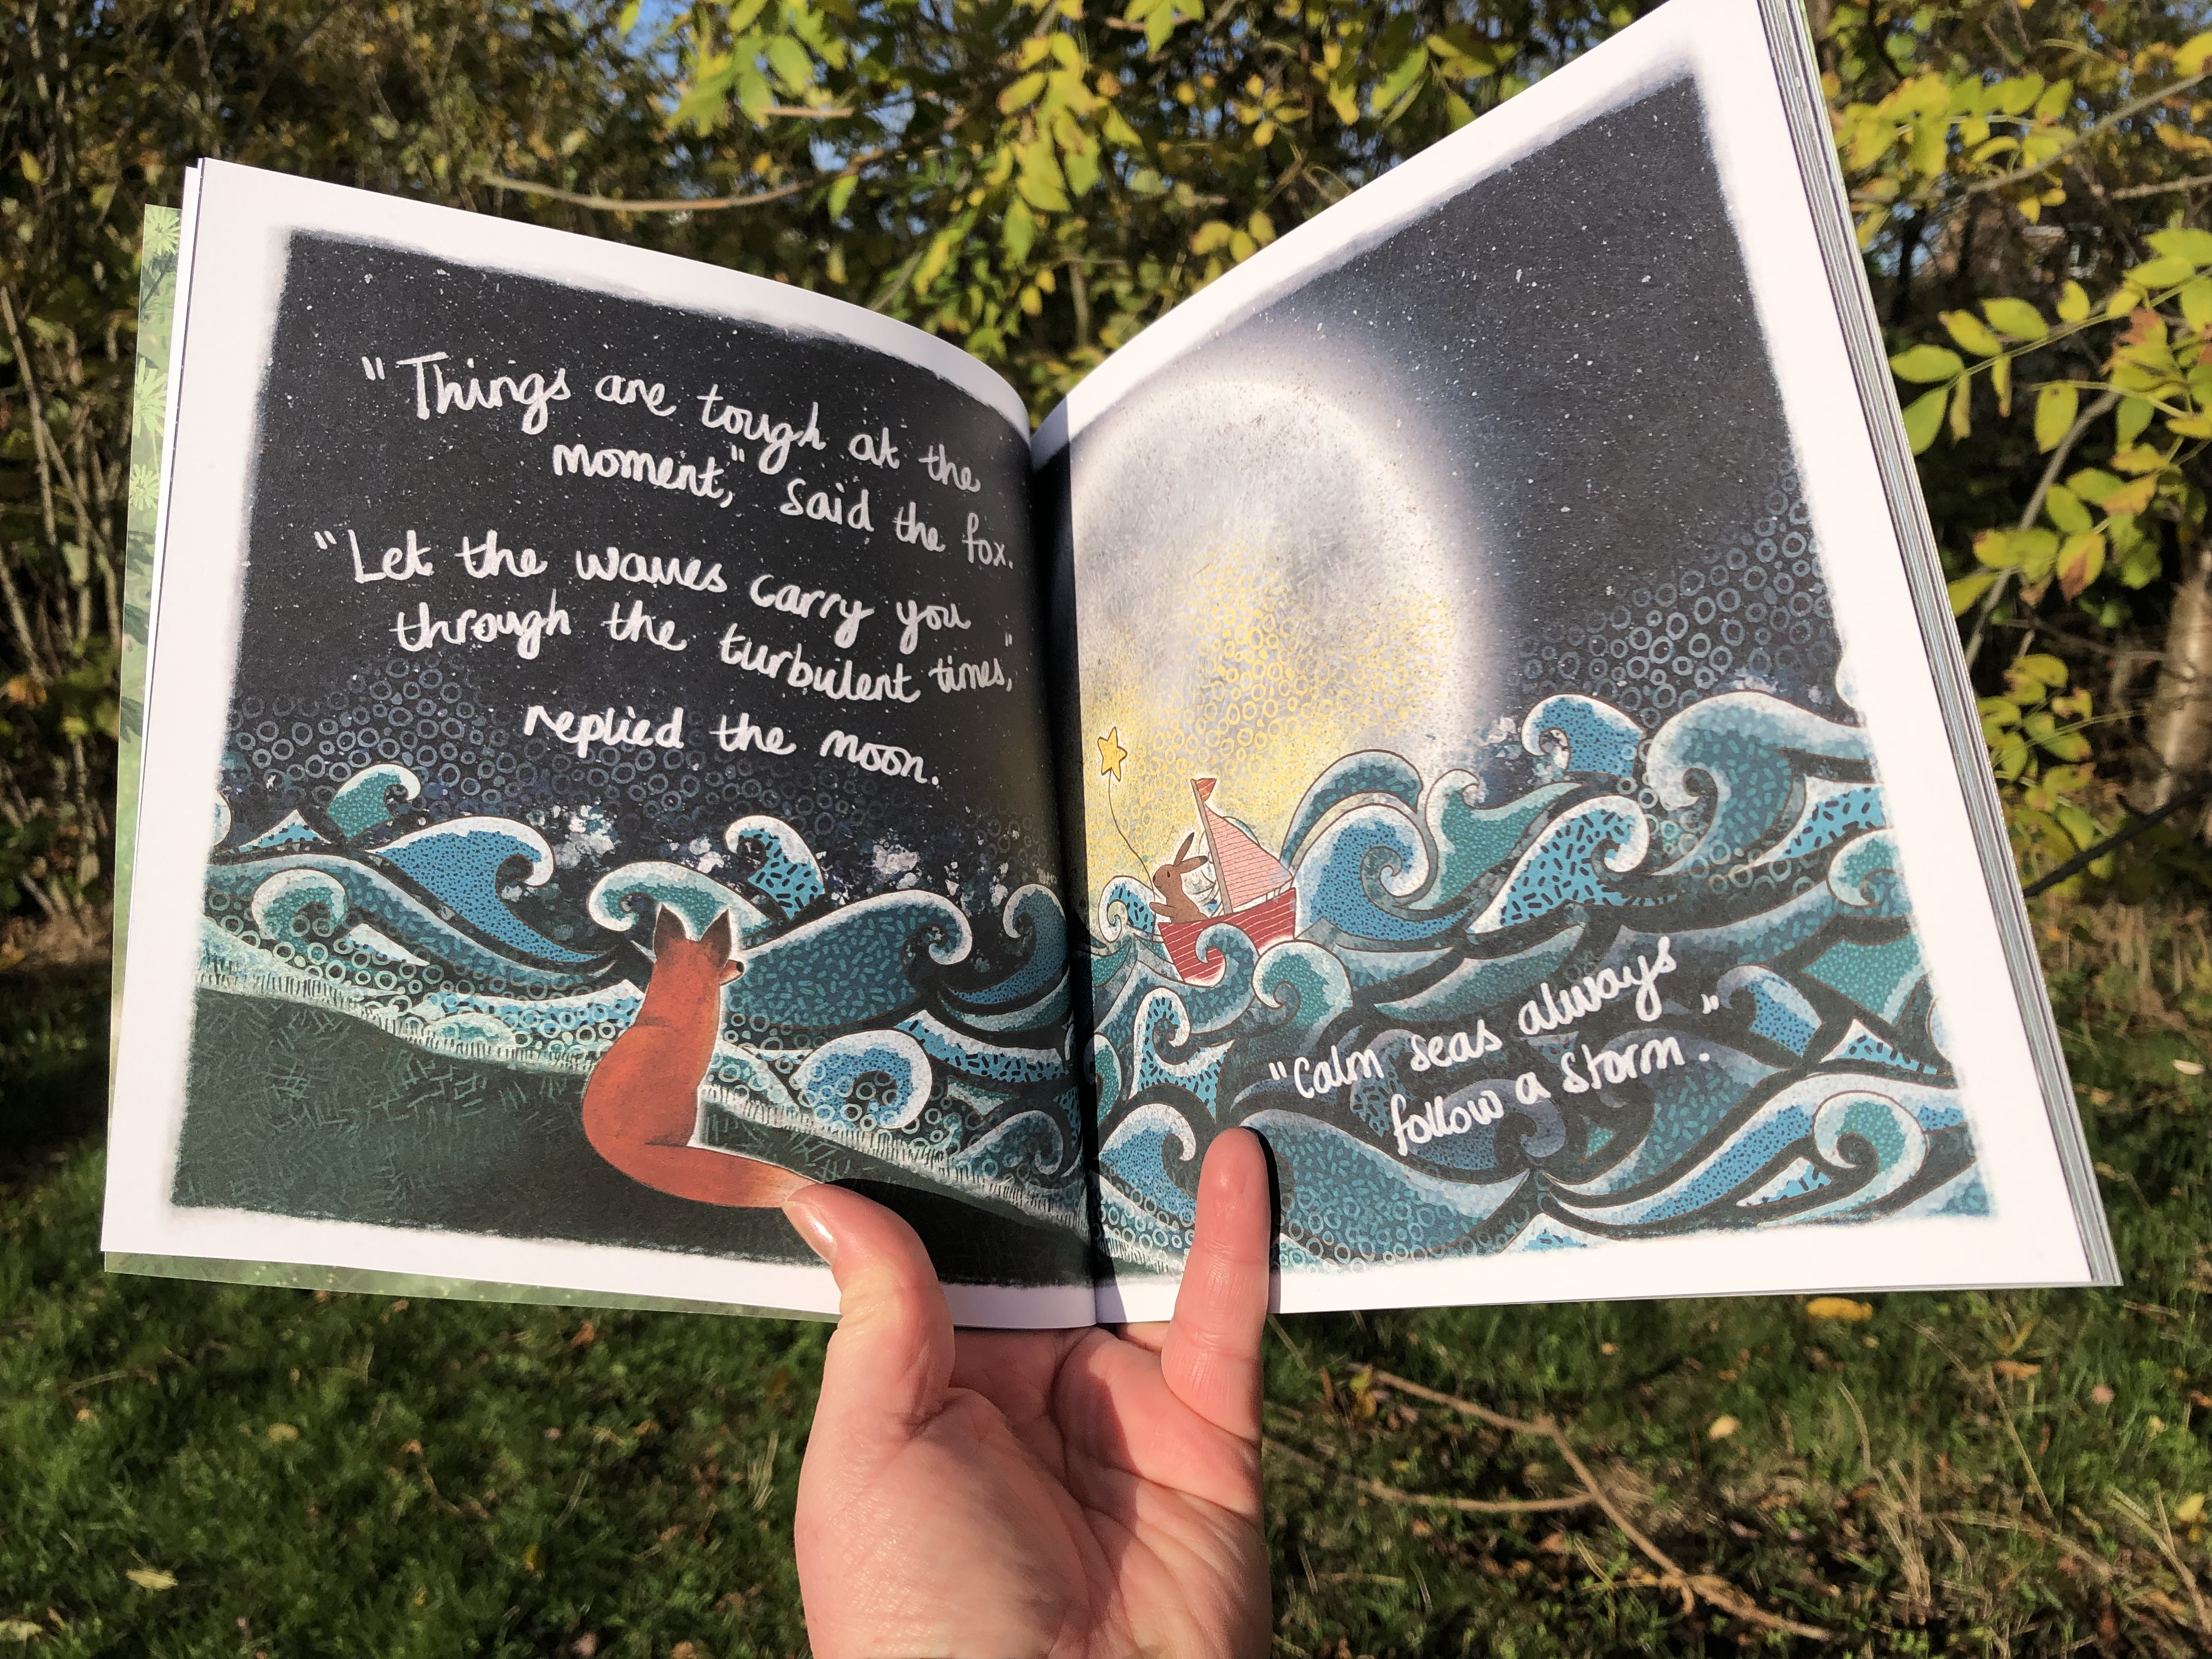 "Things are tough at the
moment," said the fox.
"Let the waves carry you
through the turbulent times,"
replied the moon.
"Calm seas always
follow a storm."